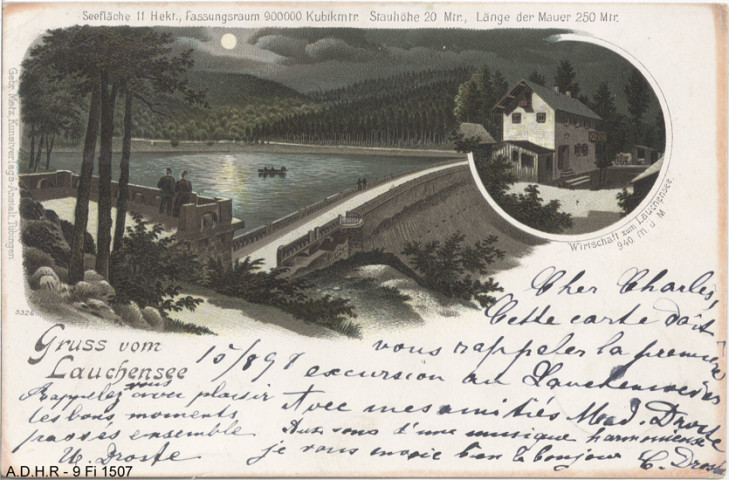 Seefläche 11 Hekt., Fassungsraum 900000 Kubikmtr. Stauhöhe 20 Mtr., Länge der Mauer 250 Mtr.
Gebr. Metz, Kunstverlags-Anstalt, Tübingen
Wirtschaft zum Lauchensee.
940 m. ü. M.
5326
Gruss vom
Lauchensee
15/8 98
Cher Charles,
Cette carte doit
vous rappeler la première
excursion au
Avec mes amitiés Mad. Droste
Aux sons d'une musique harmonieuse
je vous envoie bien le bonjour C. Droste
Rappelez vous avec plaisir
les bons moments
passés ensemble
Droste
A.D.H.R - 9 Fi 1507